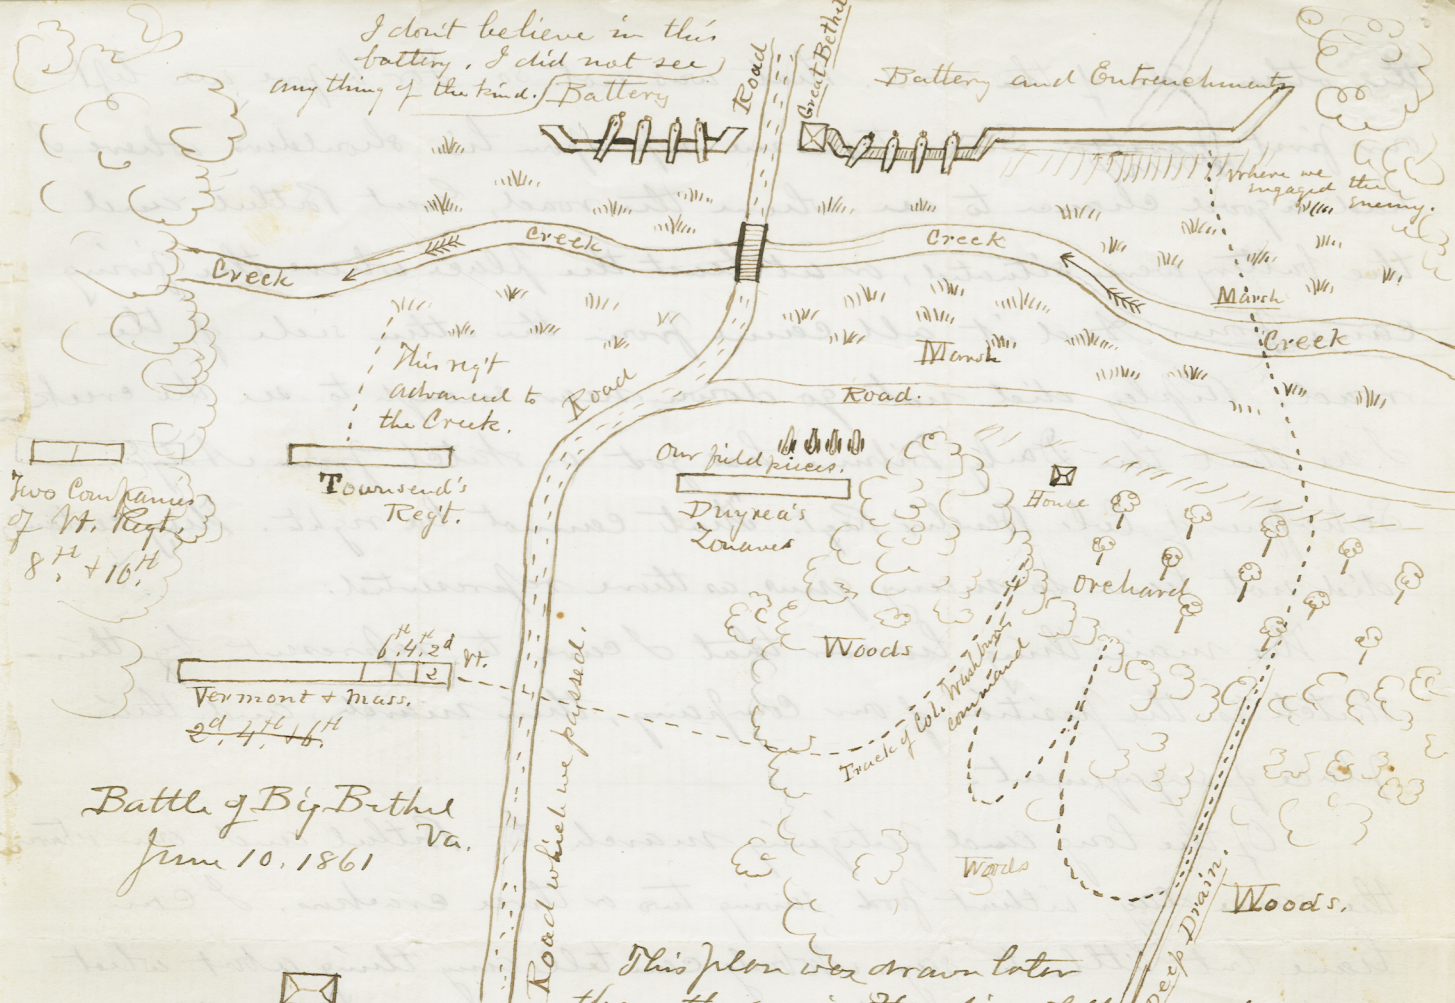 I don't believe in this
battery. I did not see
any thing of the kind.
Battery
Road
Great Bethel
Battery and Entrenchments
Where we
engaged the
enemy.
Creek
Creek
Creek
Marsh
Creek
Marsh
This reg't
advanced to
the Creek.
Road
Road.
Two Companies
of Vt. Regt.
8th + 10th
Townsend's
Reg't.
Our field pieces.
Duyrea's
Zouaves
House
Orchard
Woods
6th 4th 2d
Vt.
2
Vermont & Mass.
2d. 4th. & 6th.
Track of Col. Washburn
command
Road which we passed.
Battle of Big Bethel
Va.
June 10, 1861
Woods
Woods.
Deep Drain.
This plan was drawn later